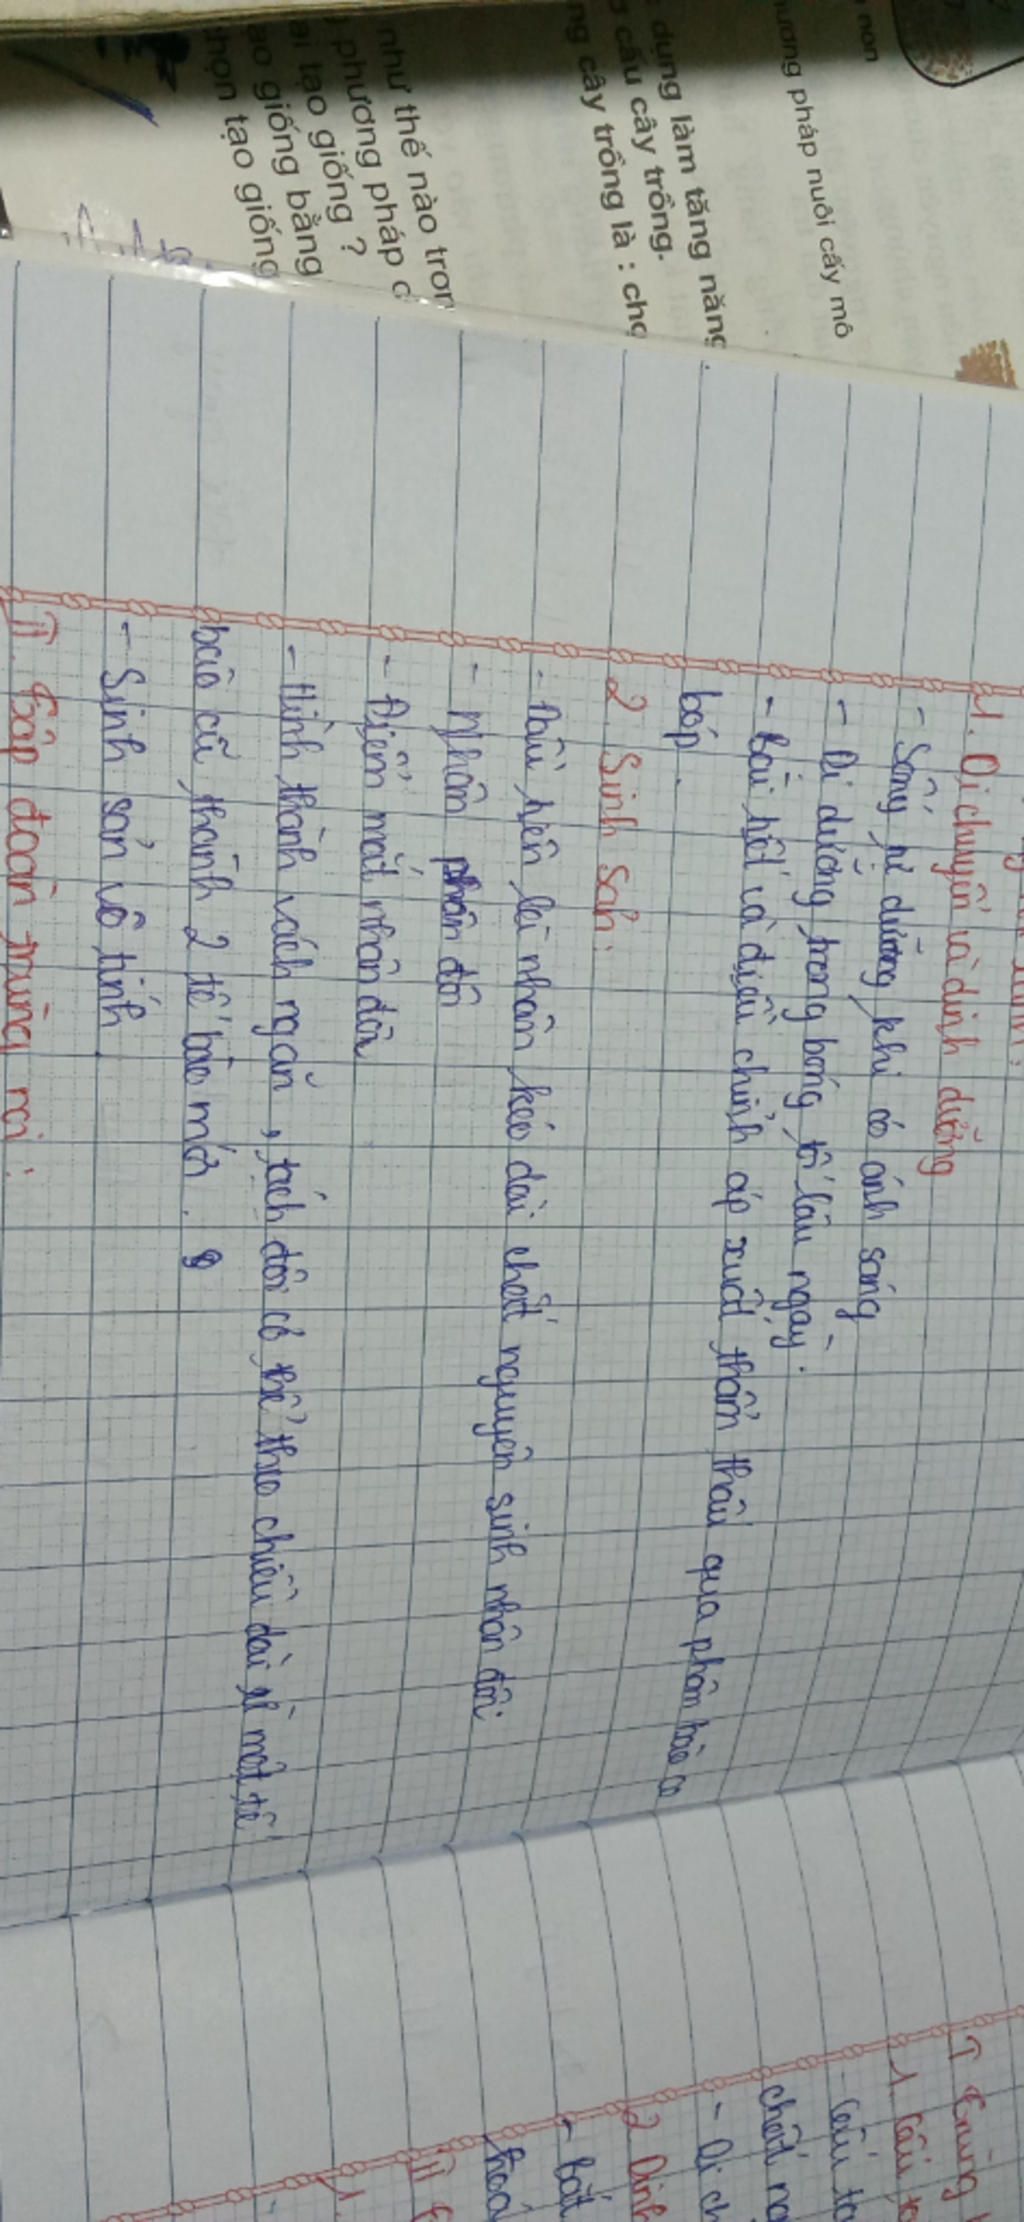 non
ương pháp nuôi cấy mô
dụng làm tăng năng
cầu cây trồng.
ng cây trồng là : chọ
như thế nào tron
phương pháp c
ai tạo giống ?
ạo giống bằng
họn tạo giống
1. Di chuyển và dinh dưỡng
- Sống tự dưỡng khi có ánh sáng
- Dị dưỡng trong bóng tối lâu ngày.
- Bài tiết và điều chỉnh áp xuất thẩm thấu qua phân bào co
bóp.
2. Sinh sản:
- Đầu tiên là nhân kéo dài chất nguyên sinh nhân đôi
- Nhân phân đôi
- Điểm mắt nhân đôi
- Hình thành vách ngăn, tách đôi cơ thể theo chiều dài từ một tế
bào cũ thành 2 tế bào mới.
- Sinh sản vô tính
II. Tập đoàn trùng roi:
I Trùng
1. Cấu tạ
- Cấu tạ
chất ng
- Di ch
2 Dinh
- Bắt
hoá
II
1